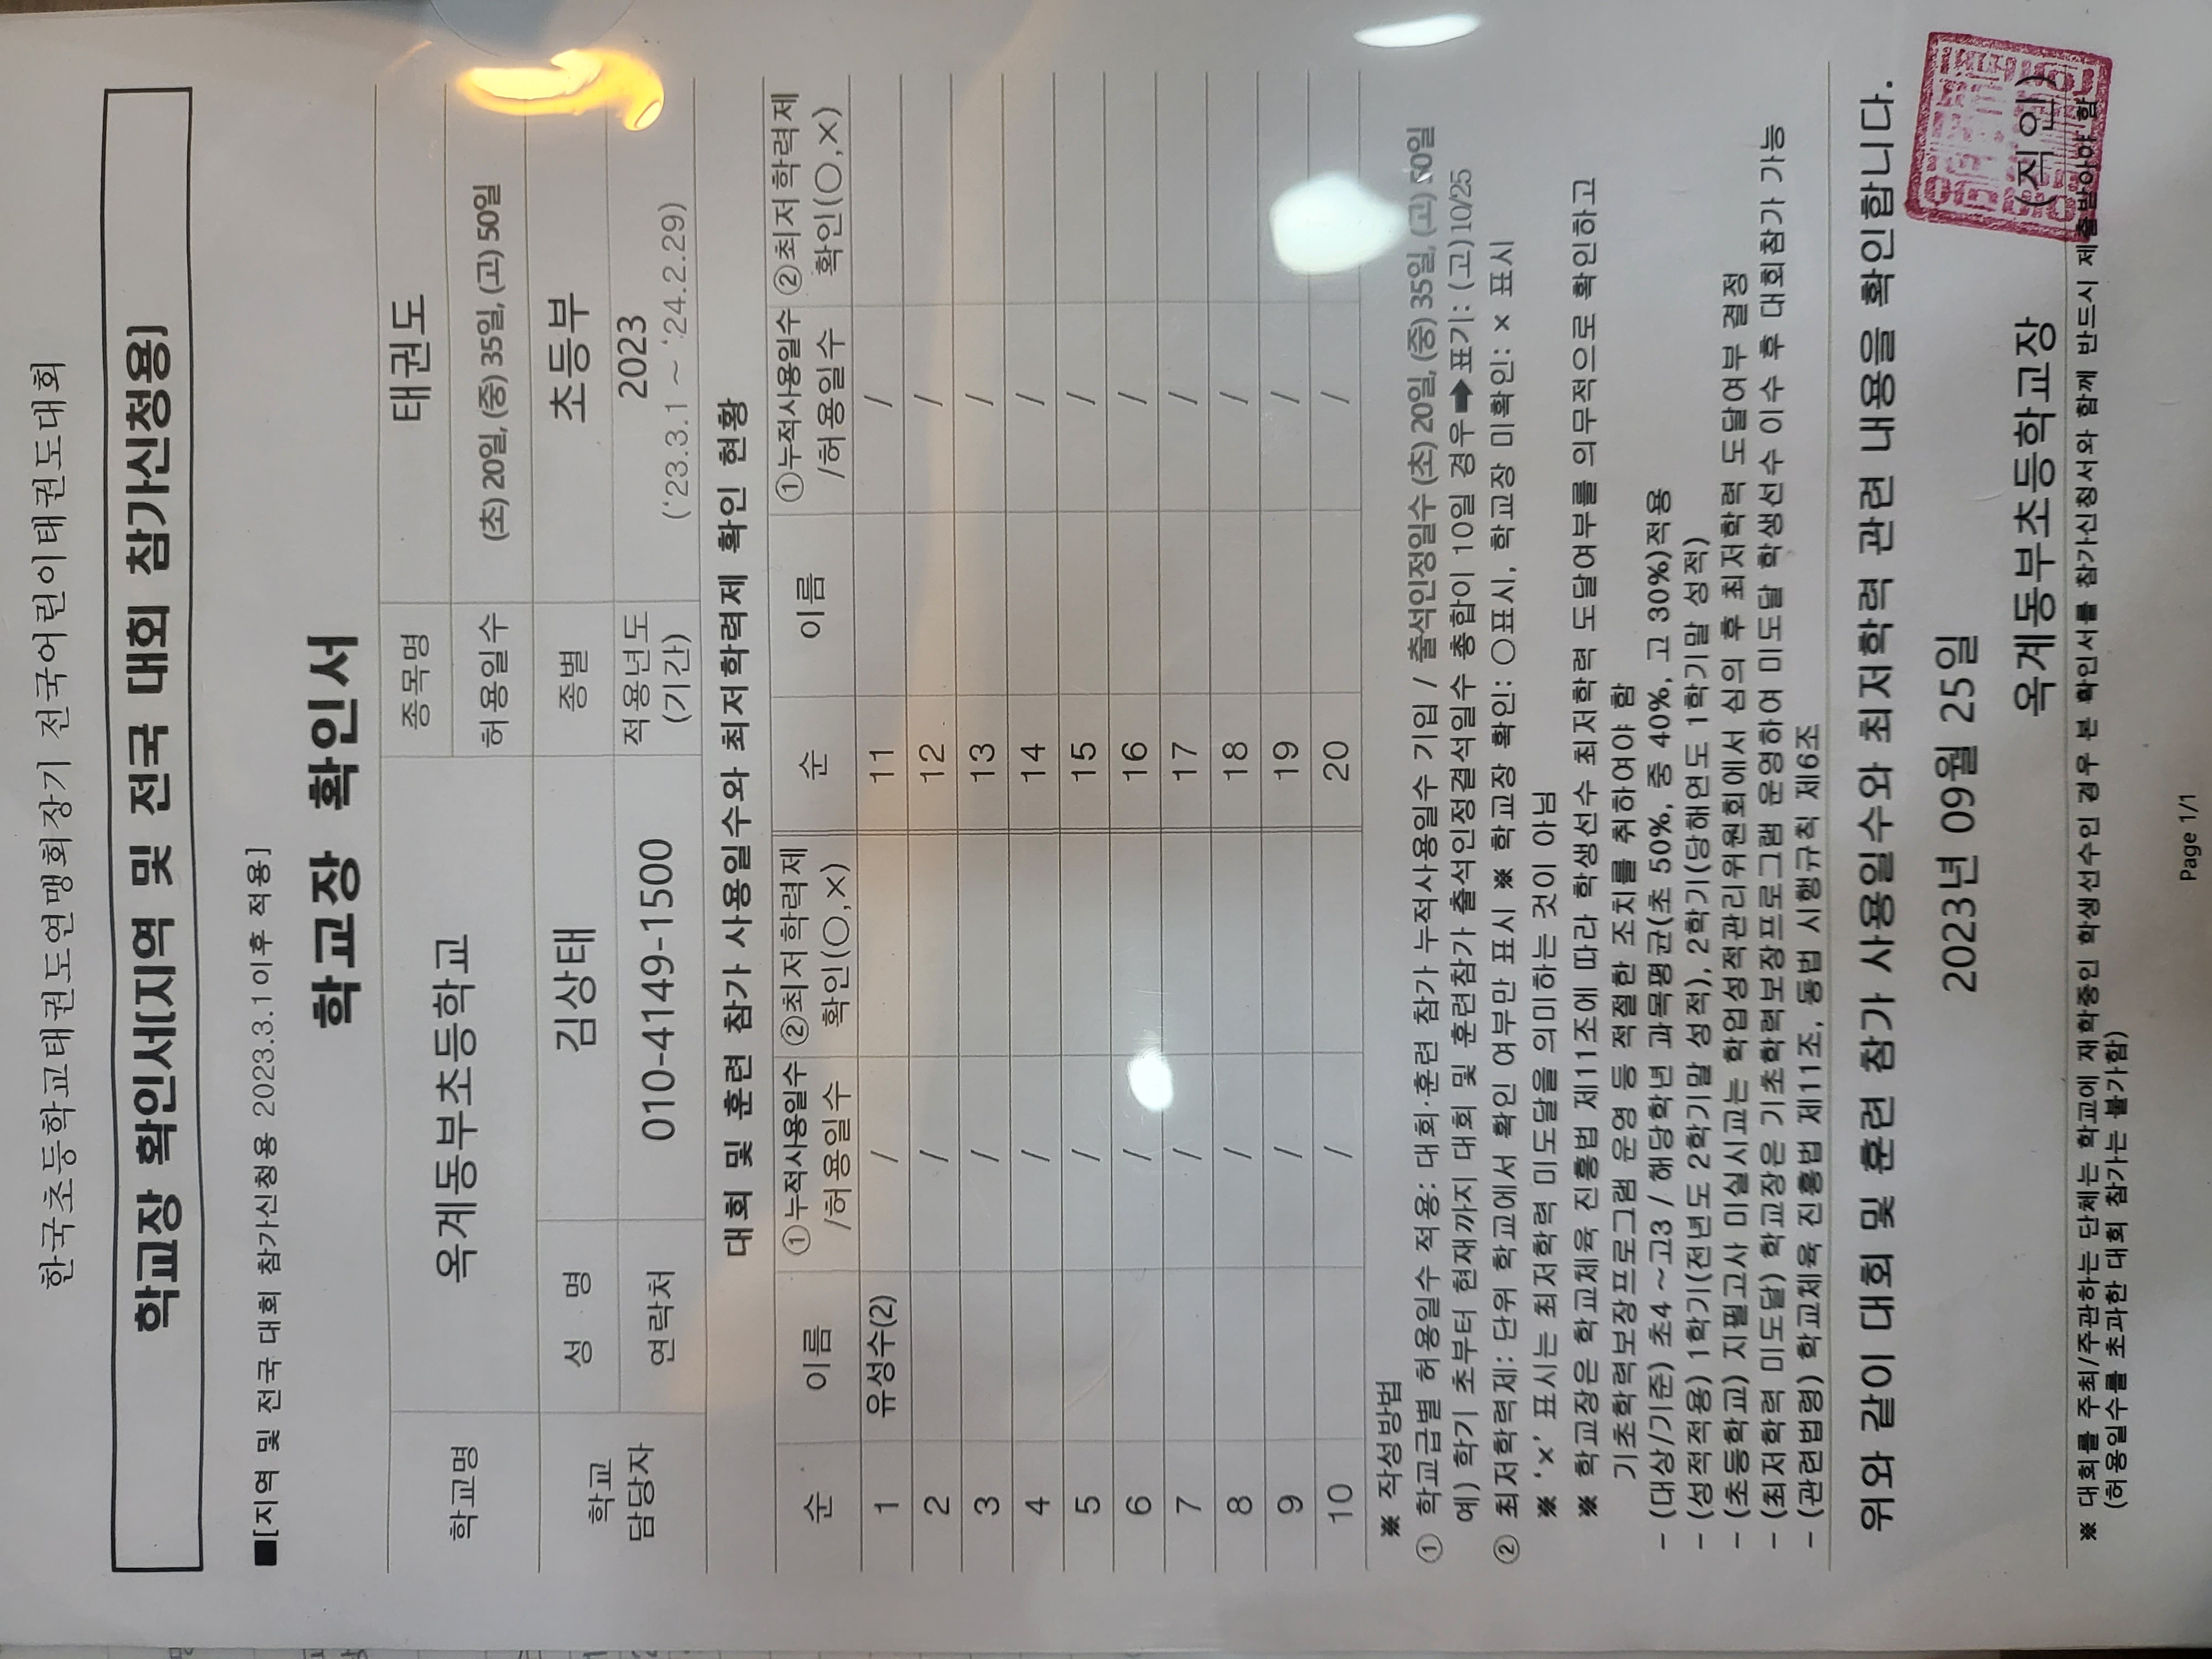 한국초등학교태권도연맹회장기 전국어린이태권도대회
학교장 확인서[지역 및 전국 대회 참가신청용]
■[지역 및 전국 대회 참가신청용 2023.3.1이후 적용]
학교장 확인서
학교명 옥계동부초등학교 종목명 태권도
허용일수 (초) 20일, (중) 35일, (고) 50일
학교 담당자 성 명 김상태 종별 초등부
연락처 010-4149-1500 적용년도 (기간) 2023
('23.3.1 ~ '24.2.29)
대회 및 훈련 참가 사용일수와 최저학력제 확인 현황
순 이름 ①누적사용일수 /허용일수 ②최저학력제 확인(○,×) 순 이름 ①누적사용일수 /허용일수 ②최저학력제 확인(○,×)
1 유성수(2) / 11 /
2 / 12 /
3 / 13 /
4 / 14 /
5 / 15 /
6 / 16 /
7 / 17 /
8 / 18 /
9 / 19 /
10 / 20 /
※ 작성방법
① 학교급별 허용일수 적용: 대회·훈련 참가 누적사용일수 기입 / 출석인정일수 (초) 20일, (중) 35일, (고) 50일
예) 학기 초부터 현재까지 대회 및 훈련참가 출석인정결석일수 총합이 10일 경우➡표기: (고)10/25
② 최저학력제: 단위 학교에서 확인 여부만 표시 ※ 학교장 확인: ○표시, 학교장 미확인: × 표시
※ '×' 표시는 최저학력 미도달을 의미하는 것이 아님
※ 학교장은 학교체육 진흥법 제11조에 따라 학생선수 최저학력 도달여부를 의무적으로 확인하고
기초학력보장프로그램 운영 등 적절한 조치를 취하여야 함
- (대상/기준) 초4 ~고3 / 해당학년 과목평균(초 50%, 중 40%, 고 30%)적용
- (성적적용) 1학기(전년도 2학기말 성적), 2학기(당해연도 1학기말 성적)
- (초등학교) 지필고사 미실시교는 학업성적관리위원회에서 심의 후 최저학력 도달여부 결정
- (최저학력 미도달) 학교장은 기초학력보장프로그램 운영하여 미도달 학생선수 이수 후 대회참가 가능
- (관련법령) 학교체육 진흥법 제11조, 동법 시행규칙 제6조
위와 같이 대회 및 훈련 참가 사용일수와 최저학력 관련 내용을 확인합니다.
2023년 09월 25일
옥계동부초등학교장 (직인)
※ 대회를 주최/주관하는 단체는 학교에 재학중인 학생선수인 경우 본 확인서를 참가신청서와 함께 반드시 제출받아야 함
(허용일수를 초과한 대회 참가는 불가함)
Page 1/1